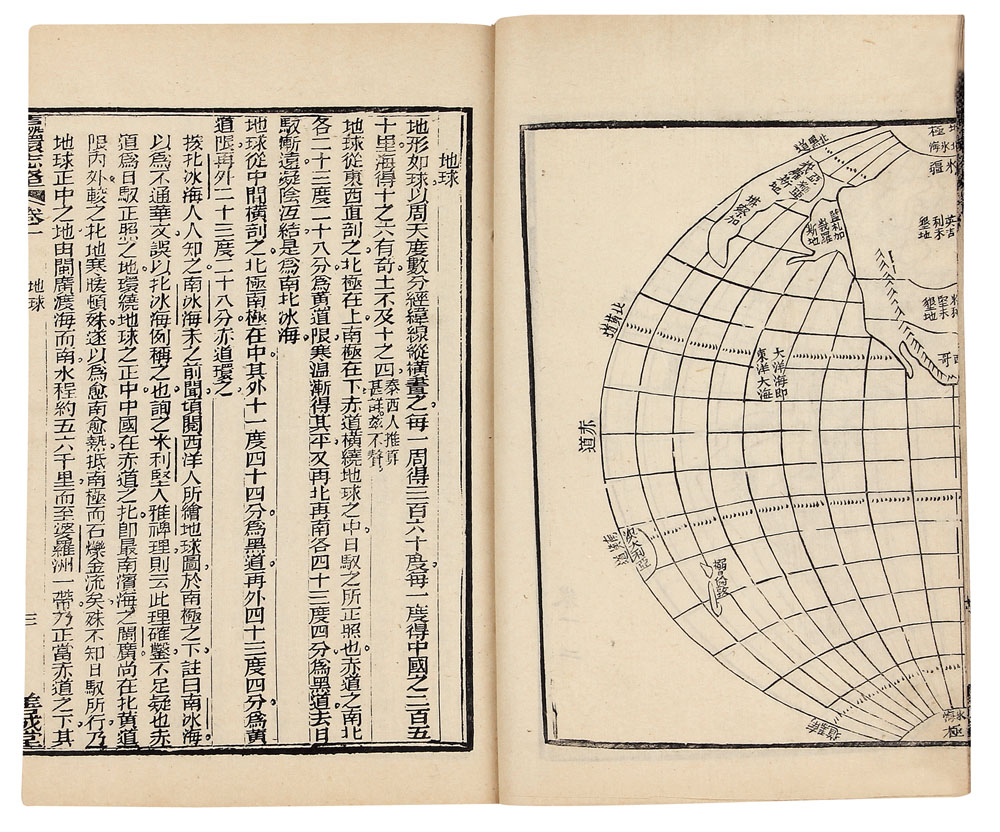 極
英吉利未墾地
北黑道
監札加
義羅斯地
堪察加
北黃道
大洋海即
東洋大海
赤道
澳大利亞
南黑道
極
地球
地形如球以周天度數分經緯線縱橫畫之每一周得三百六十度每一度得中國之二百五
十里海得十之六有奇土不及十之四泰西人推算甚詳茲不贅
地球從東西直剖之北極在上南極在下赤道橫繞地球之中日馭之所正照也赤道之南北
各二十三度二十八分爲黃道限寒溫漸得其平又再北再南各四十三度四分爲黑道去日
馭漸遠凝陰冱結是爲南北冰海
地球從中間橫剖之北極南極在中其外十一度四十四分爲黑道再外四十三度四分爲黃
道限再外二十三度二十八分赤道環之
按北冰海人人知之南冰海未之前聞頃閱西洋人所繪地球圖於南極之下註曰南冰海
以爲不通華文誤以北冰海例稱之也詢之米利堅人雅裨理則云此理確鑿不足疑也赤
道爲日馭正照之地環繞地球之正中中國在赤道之北即最南濱海之閩廣尚在北黃道
限內外較之北地寒暖頓殊遂以爲愈南愈熱抵南極而石爍金流矣殊不知日馭所行乃
地球正中之地由閩廣渡海而南水程約五六千里而至婆羅洲一帶乃正當赤道之下其
瀛環志略 卷一
地球
三
善成堂